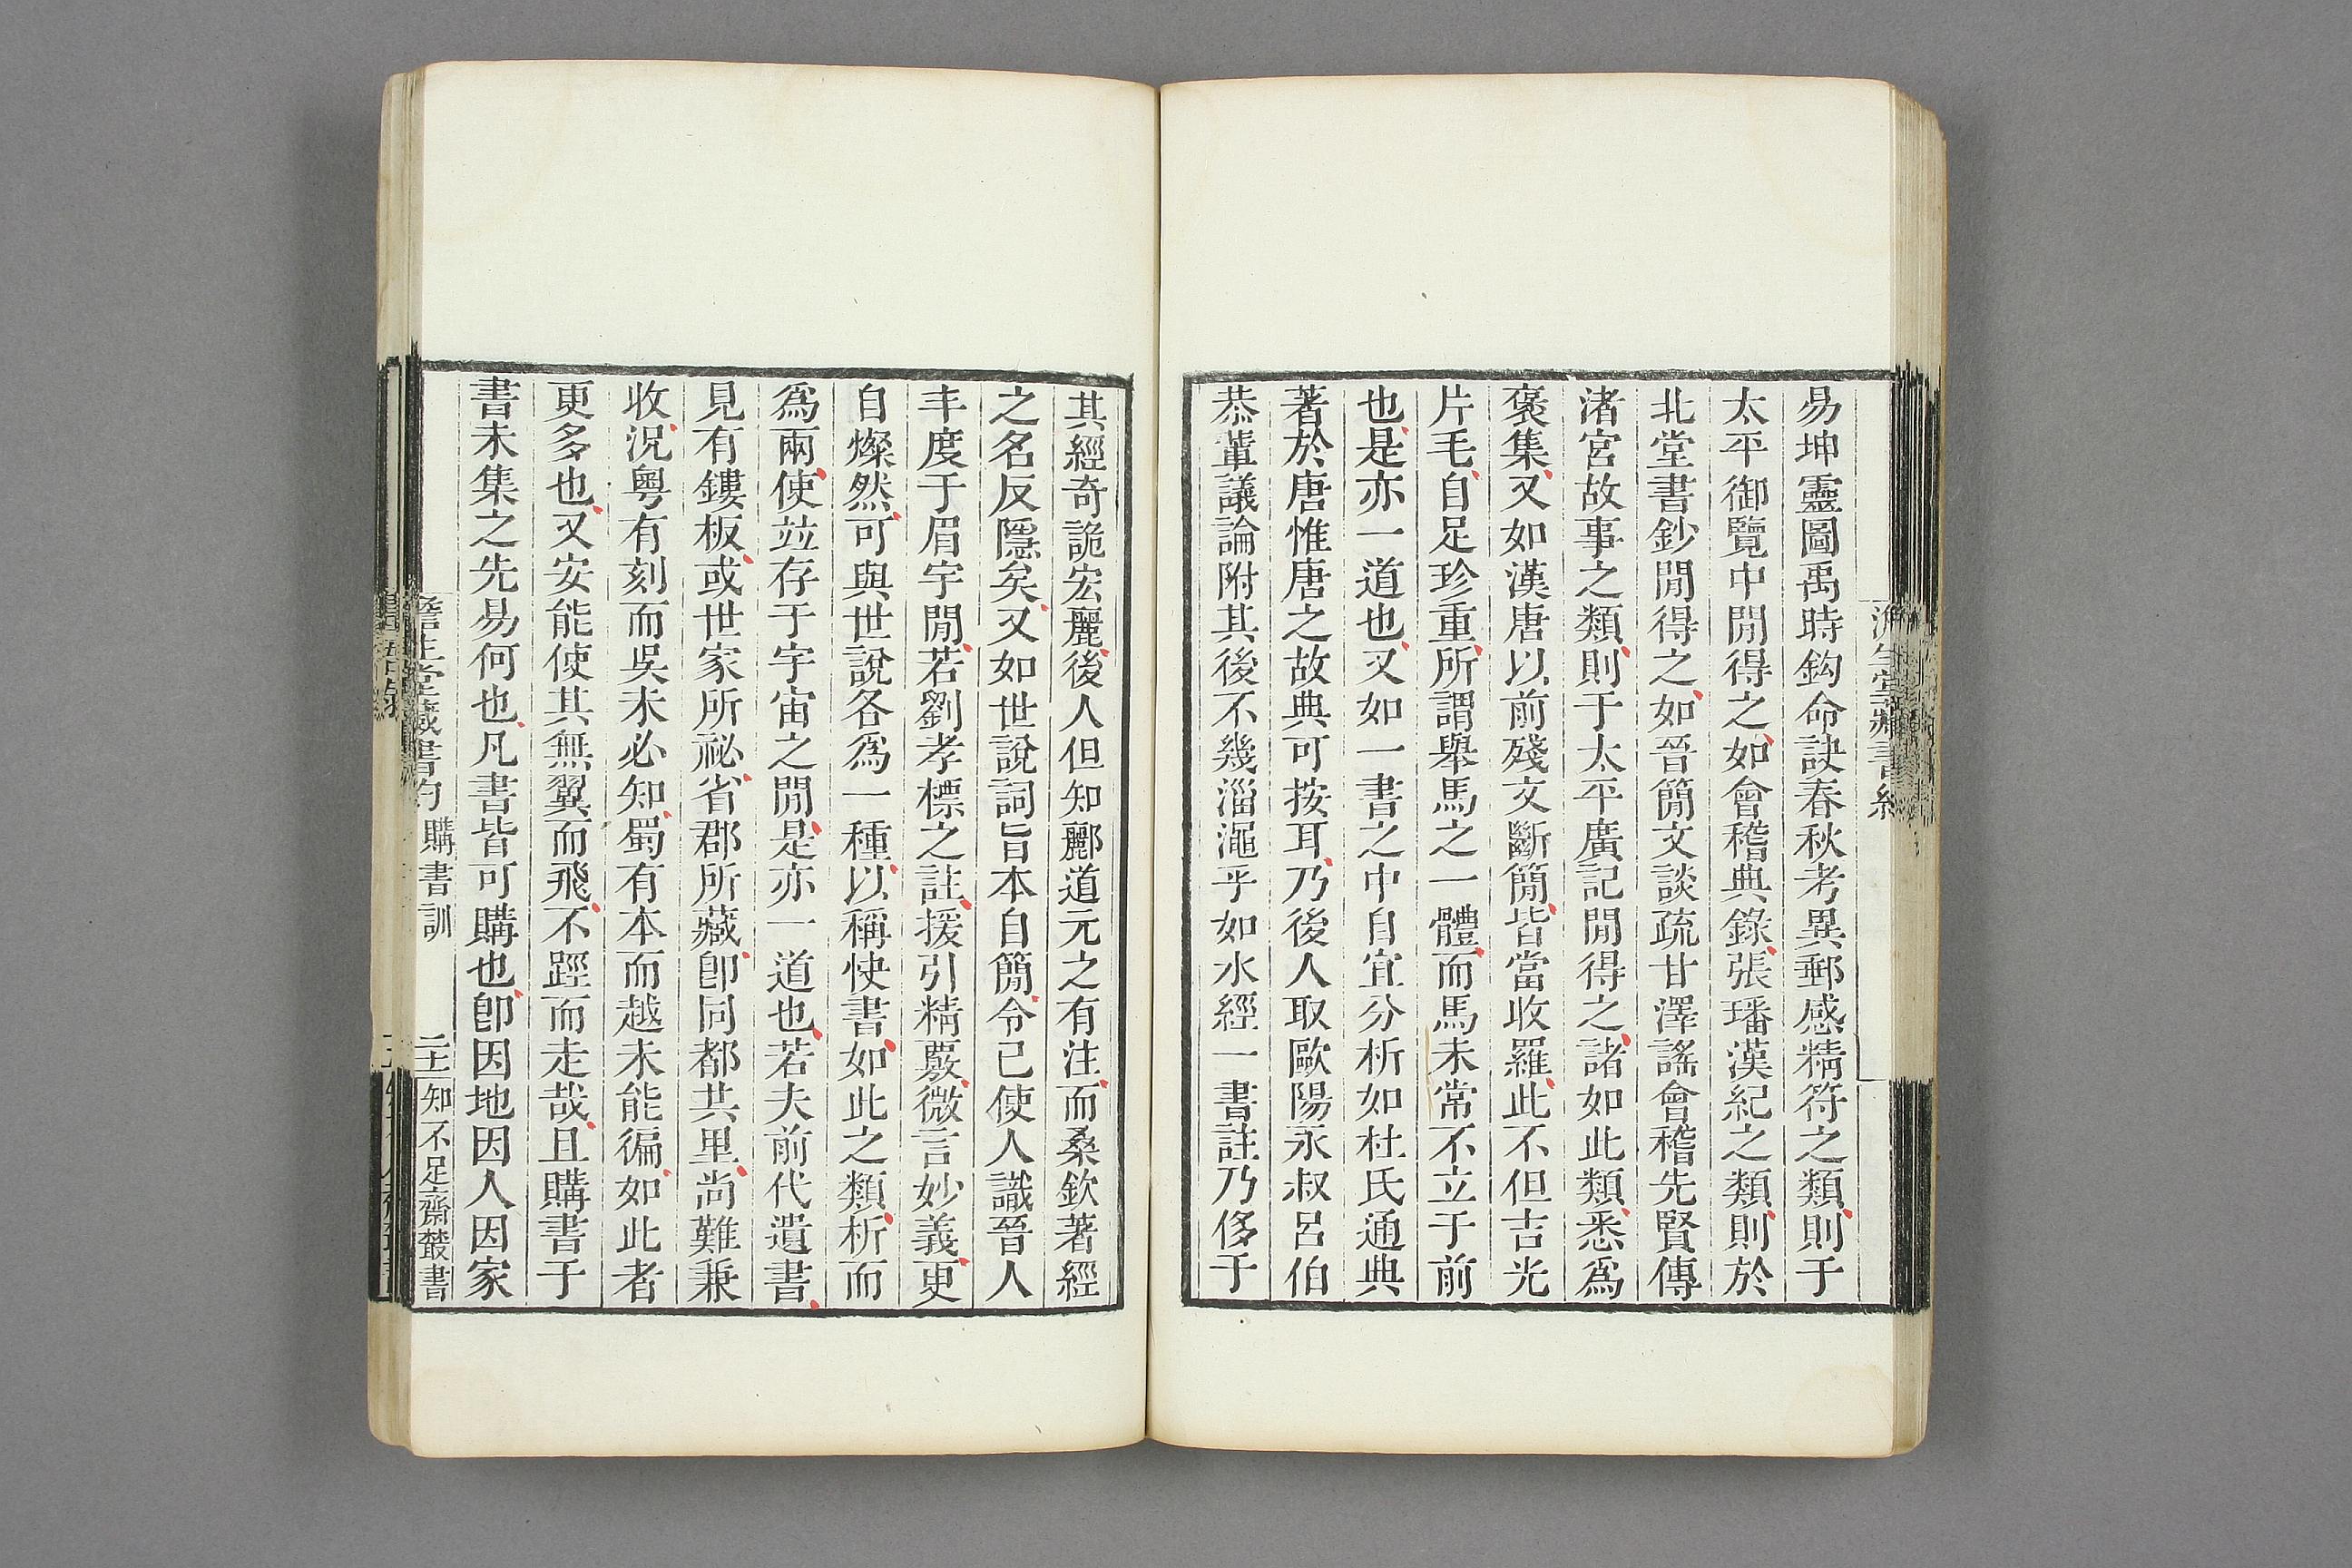 易坤靈圖禹時鈎命訣春秋考異郵感精符之類則于
太平御覽中閒得之如會稽典錄張璠漢紀之類則於
北堂書鈔閒得之如晉簡文談疏甘澤謠會稽先賢傳
渚宮故事之類則于太平廣記閒得之諸如此類悉爲
褒集又如漢唐以前殘文斷簡皆當收羅此不但吉光
片毛自足珍重所謂舉馬之一體而馬未常不立于前
也是亦一道也又如一書之中自宜分析如杜氏通典
著於唐惟唐之故典可按耳乃後人取歐陽永叔呂伯
恭輩議論附其後不幾淄澠乎如水經一書註乃侈于
其經奇詭宏麗後人但知酈道元之有注而桑欽著經
之名反隱矣又如世說詞旨本自簡令已使人識晉人
丰度于眉宇閒若劉孝標之註援引精覈微言妙義更
自燦然可與世說各爲一種以稱快書如此之類析而
爲兩使竝存于宇宙之閒是亦一道也若夫前代遺書
見有鏤板或世家所祕省郡所藏卽同都共里尚難兼
收況粤有刻而吳未必知蜀有本而越未能徧如此者
更多也又安能使其無翼而飛不踁而走哉且購書于
書未集之先易何也凡書皆可購也卽因地因人因家
澹生堂藏書約 購書訓 知不足齋叢書